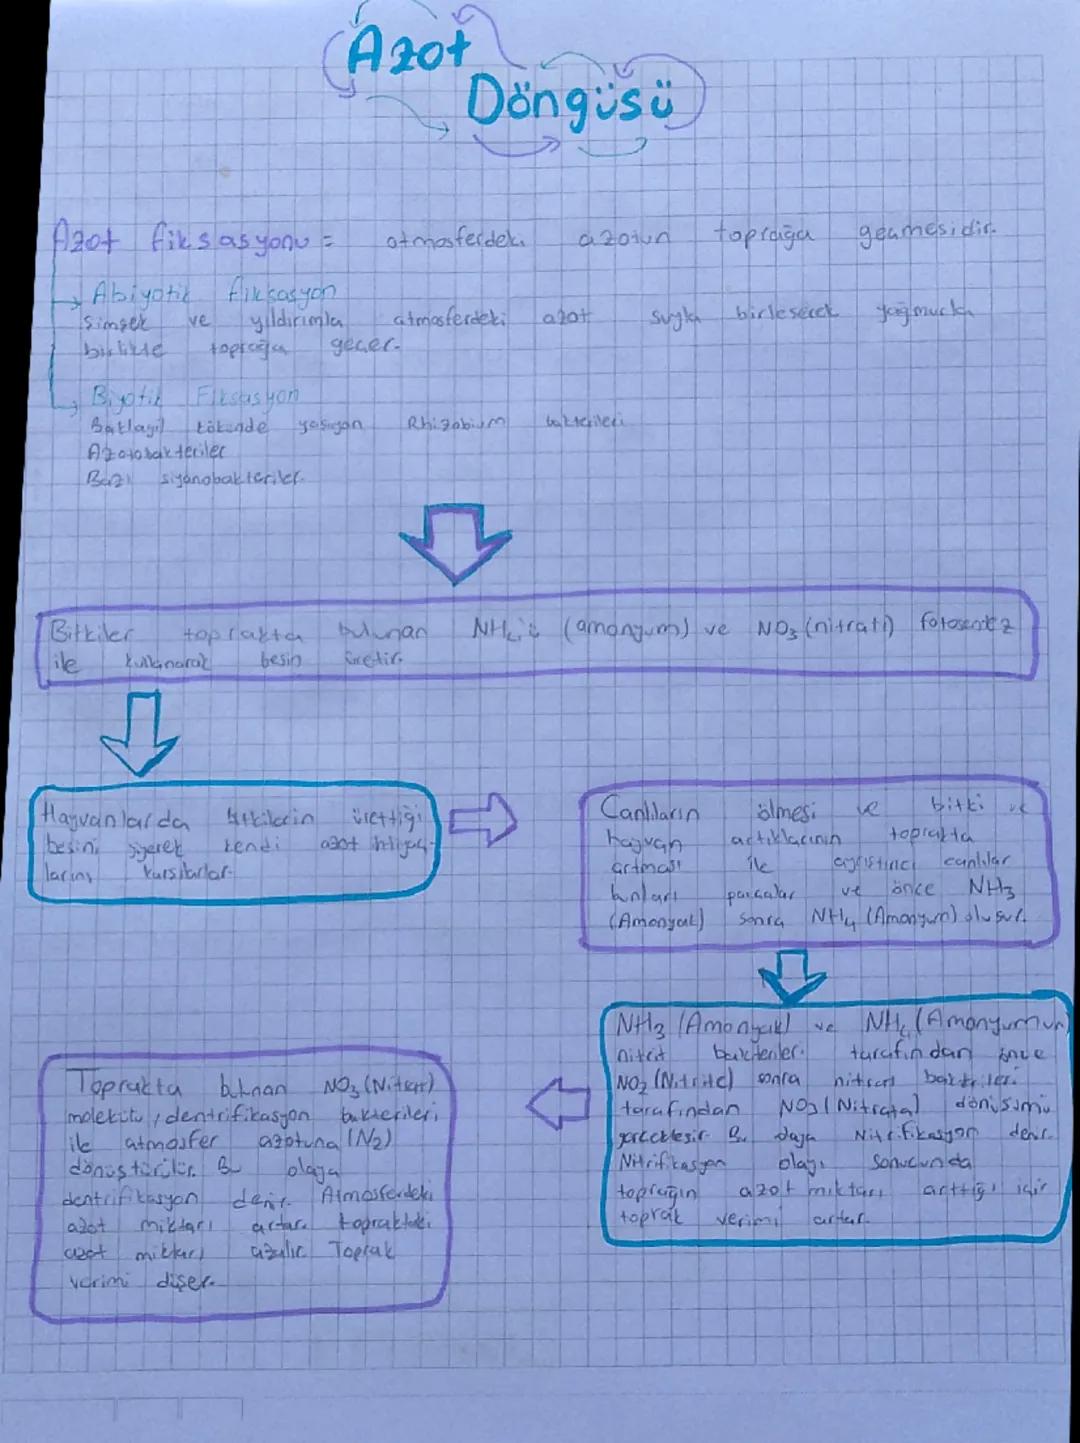 Azot
Döngüsü
Azot fiksasyonu = atmosferdeki azotun toprağa geçmesidir.
Abiyotik fiksasyon
Şimşek ve yıldırımla atmosferdeki azot suyla birleşerek yağmurla
birlikte toprağa geçer.
Biyotik Fiksasyon
Baklagil kökünde yaşayan Rhizobium bakterileri
Azotobakteriler
Bazı siyanobakteriler.
Bitkiler toprakta bulunan NH4'ü (amonyum) ve NO3 (nitratı) fotosentez
ile kullanarak besin üretir.
Hayvanlarda bitkilerin ürettiği
besini yiyerek kendi azot ihtiyaç-
larını karşılarlar.
Canlıların ölmesi ve bitki ve
hayvan artıklarının toprakta
artması ile ayrıştırıcı canlılar
bunları parçalar ve önce NH3
(Amonyak) sonra NH4 (Amonyum) oluşur.
NH3 (Amonyak) ve NH4 (Amonyumun)
nitrit bakterileri tarafından önce
NO2 (Nitrite) sonra nitrat bakterileri
tarafından NO3 (Nitrata) dönüşümü
gerçekleşir. Bu olaya Nitrifikasyon denir.
Nitrifikasyon olayı sonucunda
toprağın azot miktarı arttığı için
toprak verimi artar.
Toprakta bulunan NO3 (Nitrat)
molekülü, dentrifikasyon bakterileri
ile atmosfer azotuna (N2)
dönüştürülür. Bu olaya
dentrifikasyon denir. Atmosferdeki
azot miktarı artar. topraktaki
azot miktarı azalır. Toprak
verimi düşer.